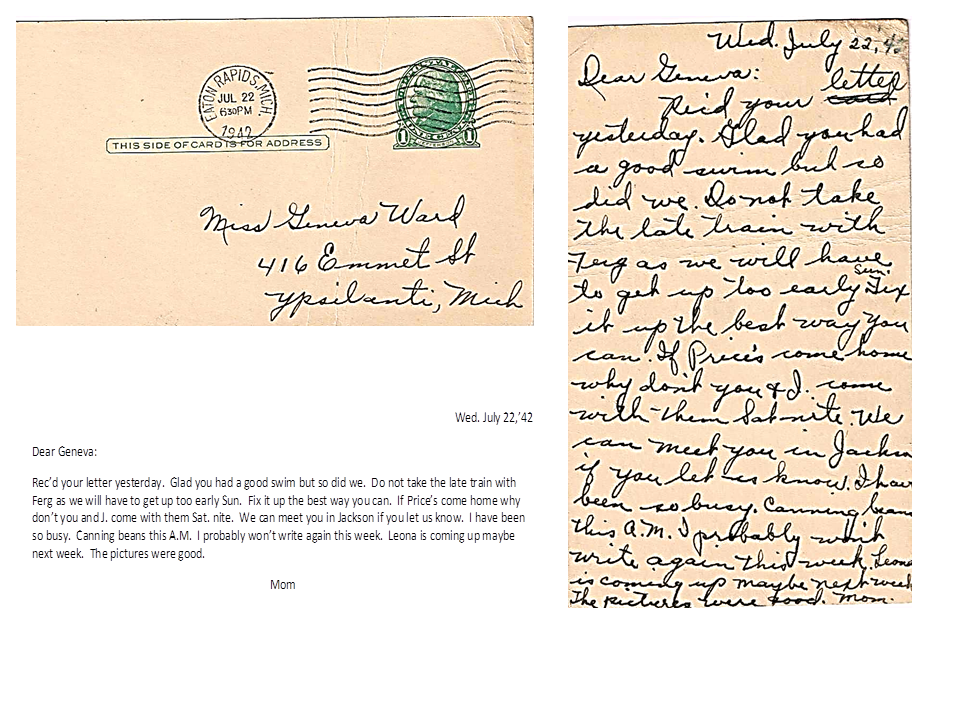 EATON RAPIDS, MICH.
JUL 22
630PM
1942
THIS SIDE OF CARD IS FOR ADDRESS
1 1
Miss Geneva Ward
416 Emmet St
Ypsilanti, Mich
Wed. July 22,'42
Dear Geneva:
Rec'd your letter yesterday. Glad you had a good swim but so did we. Do not take the late train with
Ferg as we will have to get up too early Sun. Fix it up the best way you can. If Price's come home why
don't you and J. come with them Sat. nite. We can meet you in Jackson if you let us know. I have been
so busy. Canning beans this A.M. I probably won't write again this week. Leona is coming up maybe
next week. The pictures were good.
Mom
Wed. July 22, '42
Dear Geneva:
letter
Rec'd your card
yesterday. Glad you had
a good swim but so
did we. Do not take
the late train with
Ferg as we will have
Sun.
to get up too early Fix
it up the best way you
can. If Price's come home
why don't you & J. come
with them Sat nite. We
can meet you in Jackson
if you let us know. I have
been so busy. Canning beans
this A.M. I probably won't
write again this week. Leona
is coming up maybe next week
The pictures were good. Mom.